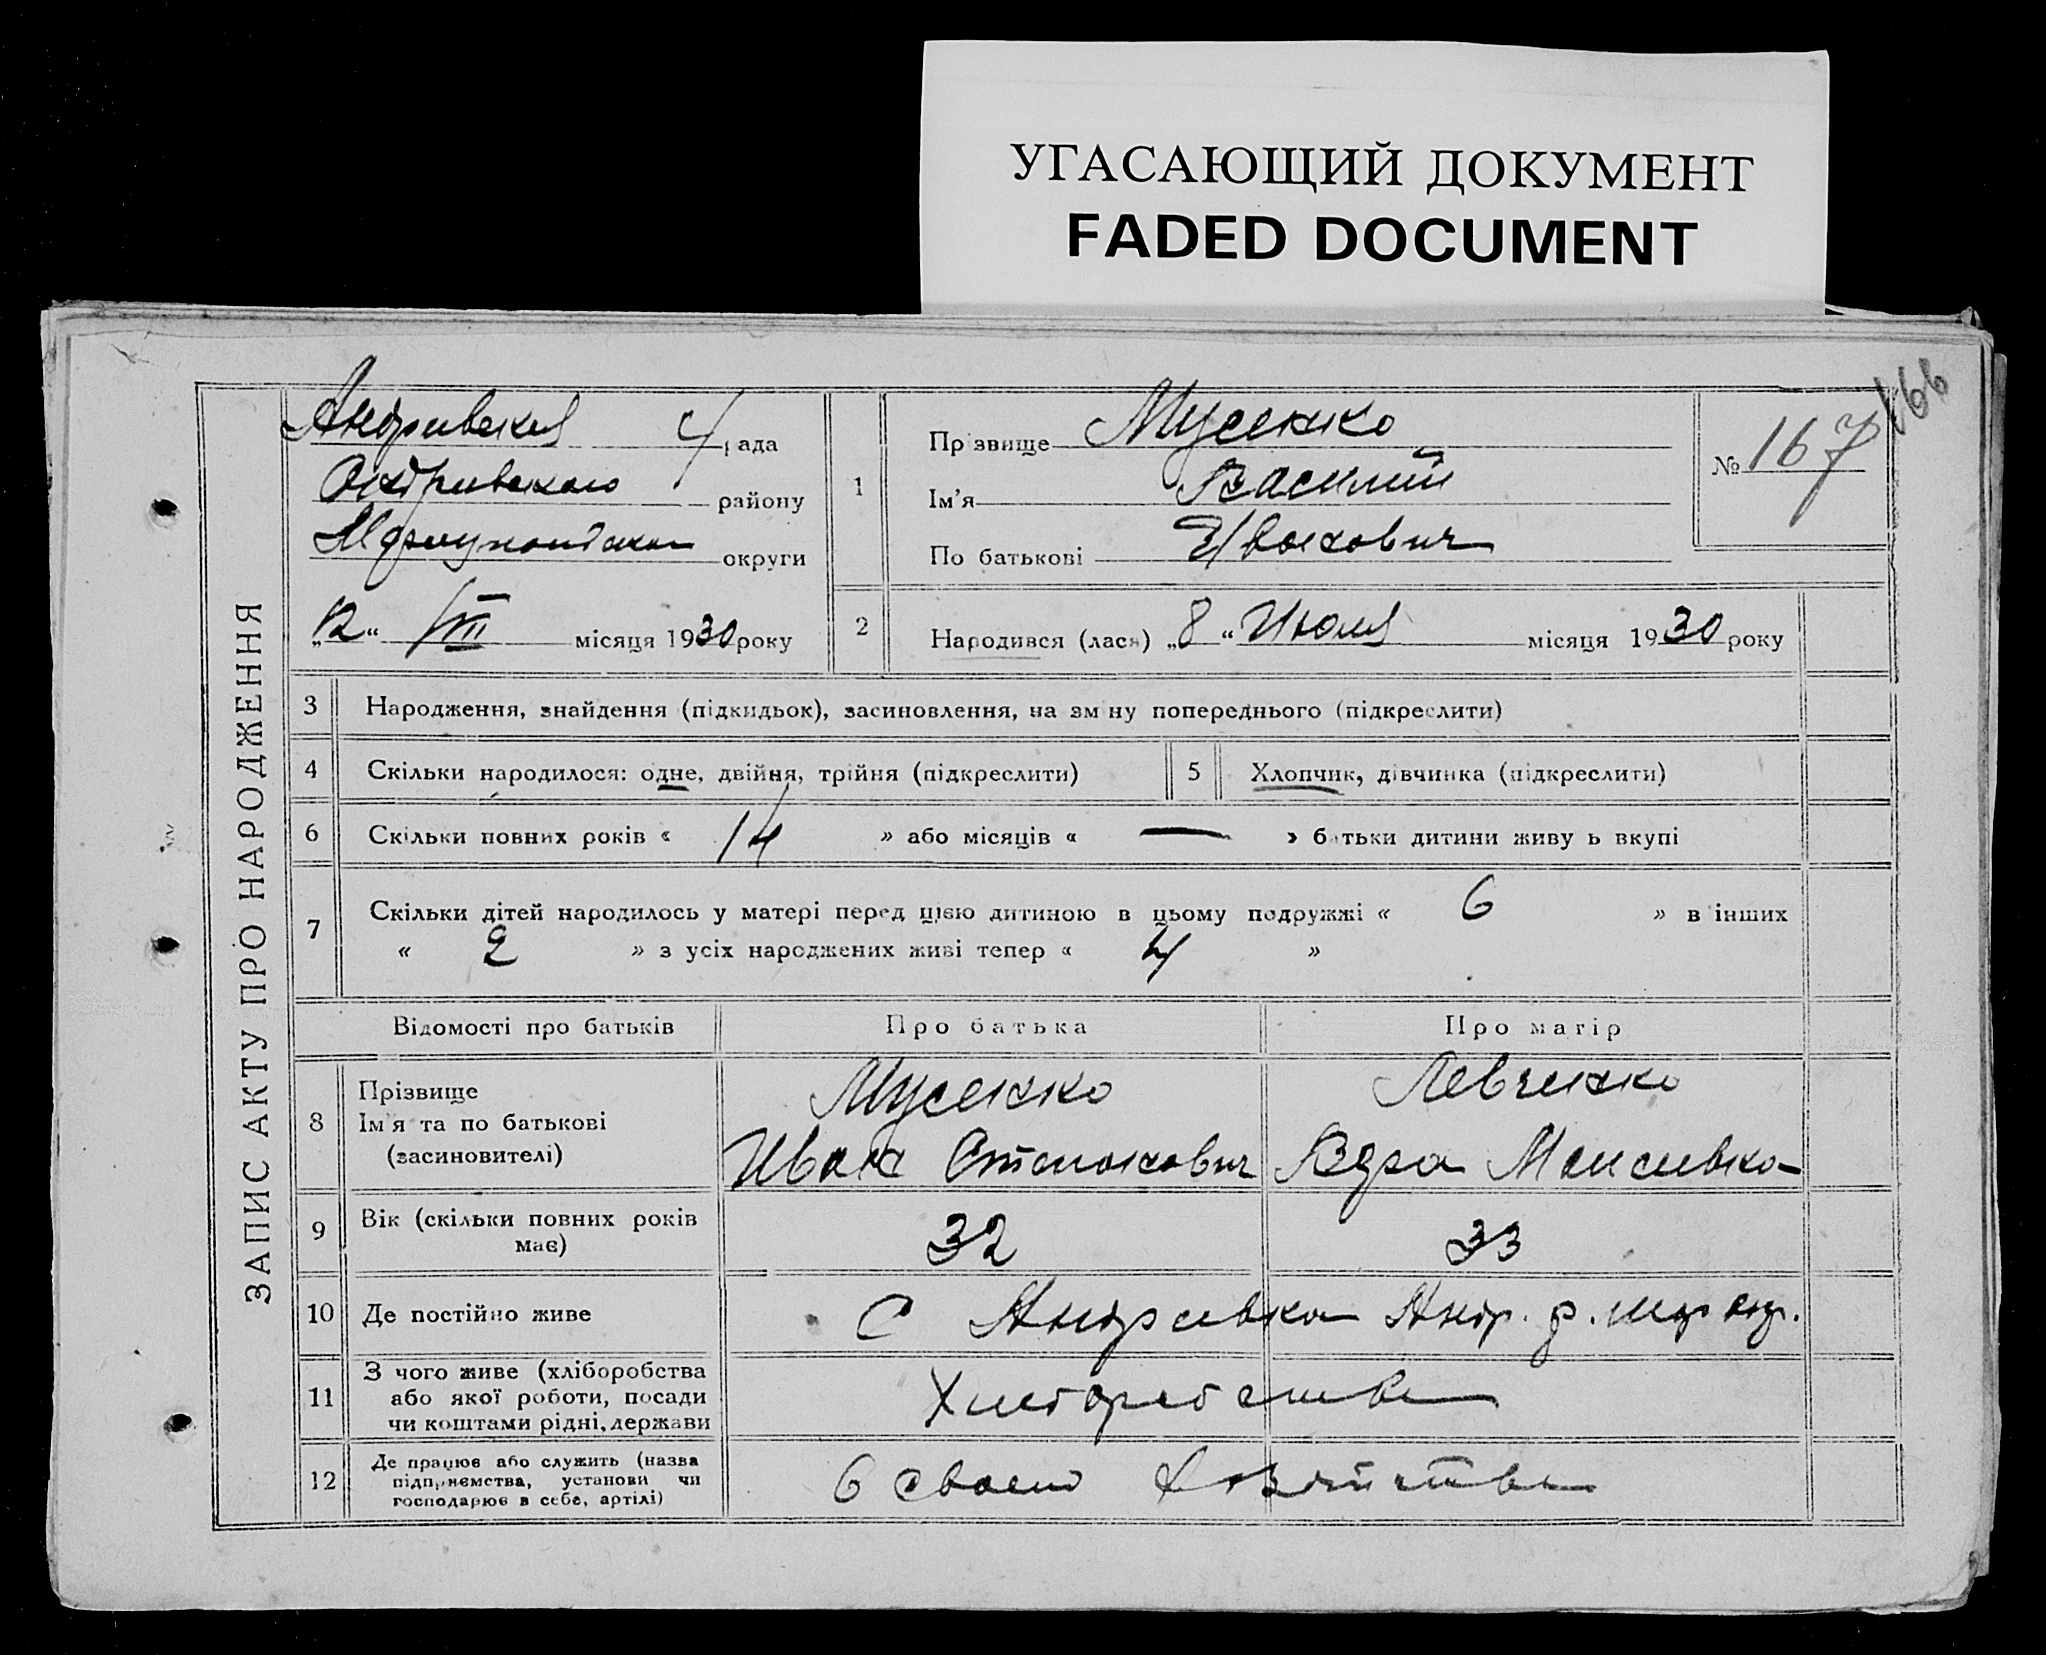 УГАСАЮЩИЙ ДОКУМЕНТ
FADED DOCUMENT
166
ЗАПИС АКТУ ПРО НАРОДЖЕННЯ
Андривская рада
Андривского району
округи
„12“ VIII місяця 1930 року
1
Прізвище Мусенко
Ім'я Василий
По батькові Иванович
№ 167
2 Народився (лася) „8“ Июля місяця 1930 року
3 Народження, знайдення (підкидьок), засиновлення, на зміну попереднього (підкреслити)
4 Скільки народилося: одне, двійня, трійня (підкреслити) 5 Хлопчик, дівчинка (підкреслити)
6 Скільки повних років « 14 » або місяців « — » батьки дитини живуть вкупі
7 Скільки дітей народилось у матері перед цією дитиною в цьому подружжі « 6 » в інших
« 2 » з усіх народжених живі тепер « 4 »
Відомості про батьків Про батька Про матір
8 Прізвище Мусенко Левченко
Ім'я та по батькові Иван
(засиновителі)
9 Вік (скільки повних років має) 32 33
10 Де постійно живе С Андривка Андр. р. Мар окр.
11 З чого живе (хліборобства
або якої роботи, посади
чи коштами рідні, держави
12 Де працює або служить (назва
підприємства, установи чи
господарює в себе, артілі)
в своем